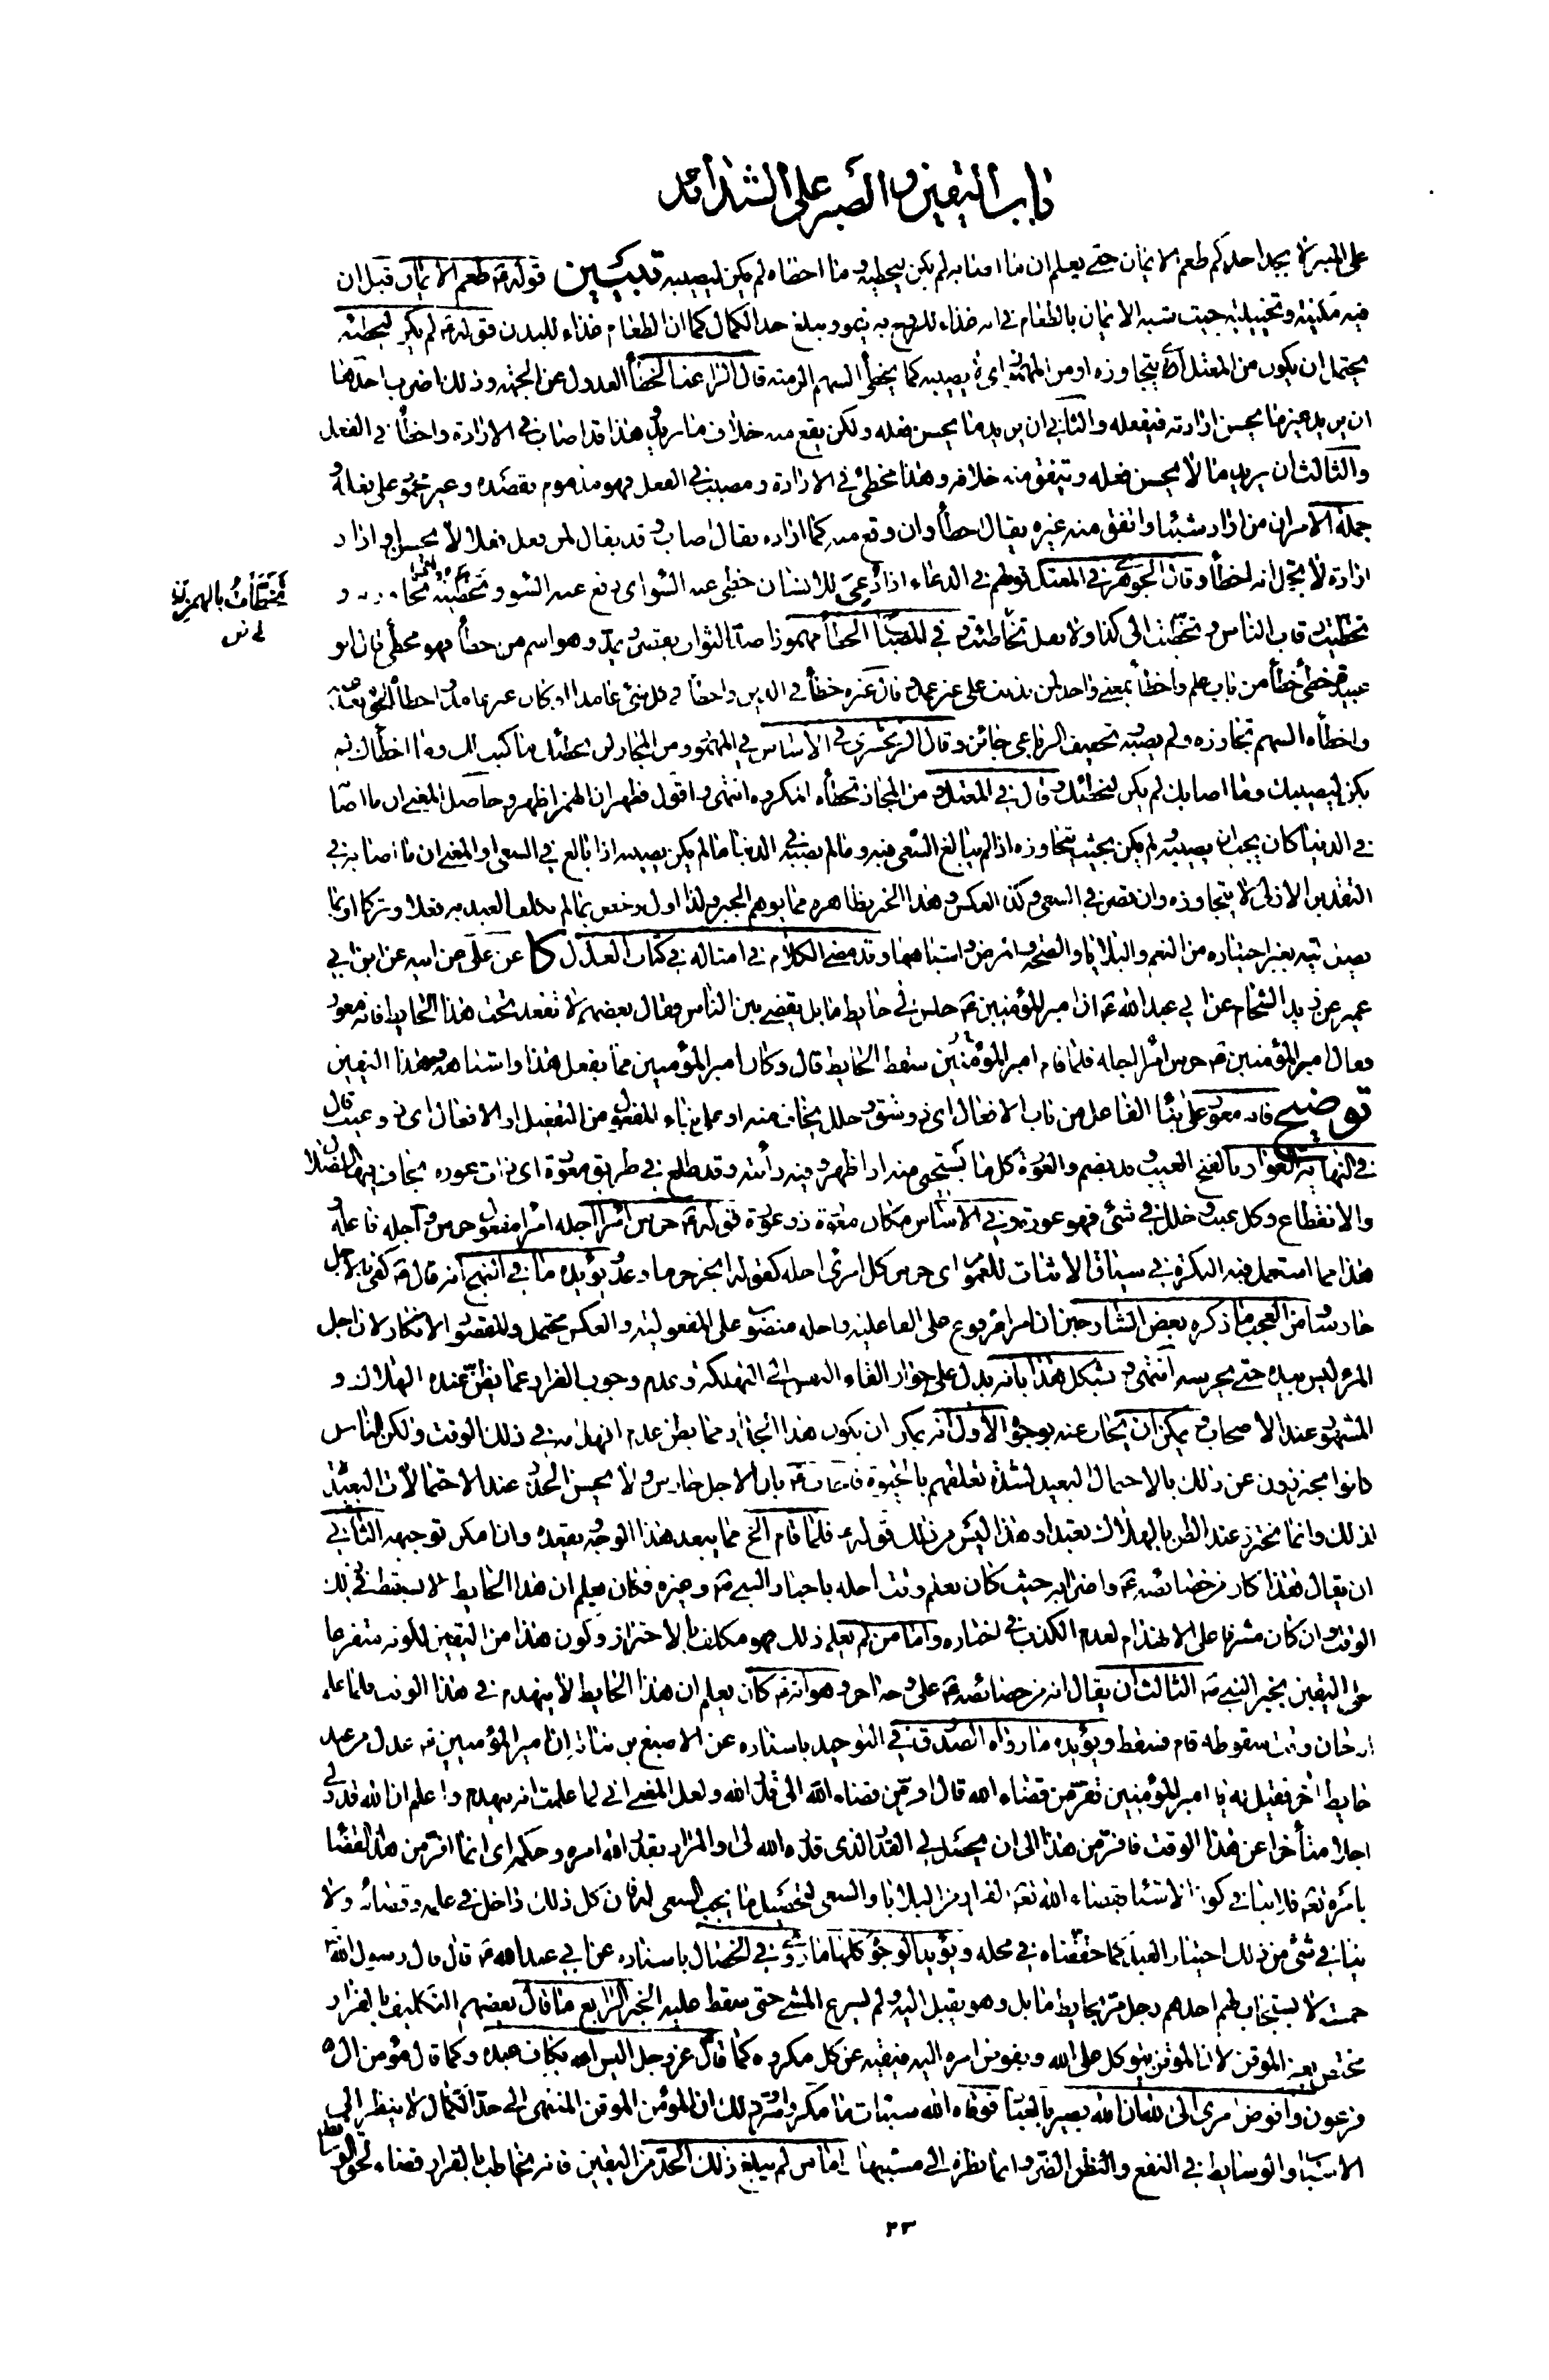 باب اليقين و الصبر على الشدائد
على المنبر لا يجد احدكم طعم الايمان حتى يعلم ان ما اصابه لم يكن ليخطئه و ما اخطاه لم يكن ليصيبه تبيين قوله ع طعم الايمان قيل ان
فيه مكنية و تخييلية حيث شبه الايمان بالطعام في انه غذاء للروح به ينمو و يبلغ حد الكمال كما ان الطعام غذاء للبدن قوله ع لم يكن ليخطئه
يحتمل ان يكون من المعتل اى يتجاوزه او من المهموز اى لا يصيبه كما يخطئ السهم الرمية قال الراغب الخطأ العدول عن الجهة و ذلك اضرب احدها
ان يريد غير ما يحسن ارادته فيفعله و الثاني ان يريد ما يحسن فعله و لكن يقع منه خلاف ما يريد و هذا قد اصاب في الارادة و اخطأ في الفعل
و الثالث ان يريد ما لا يحسن فعله و يتفق منه خلافه و هذا مخطئ في الارادة و مصيب في الفعل فهو مذموم بقصده و غير محمود على فعله و
جملة الامر ان من اراد شيئا و اتفق منه غيره يقال اخطأ و ان وقع منه كما اراده يقال اصاب و قد يقال لمن فعل فعلا لا يحسن او اراد
ارادة لا تجمل انه اخطأ و قال الجوهرى في المعتل قولهم في الدعاء اذا دعى للانسان خطى عنه السوء اى دفع عنه السوء و تخطيته
تخطأت بالهمزة
تخطيت رقاب الناس و تخطيت الى كذا و لا تقل تخاطئت و في المصباح الخطأ مهموزا ضد الصواب يقصر و يمد و هو اسم من اخطأ فهو مخطئ قال ابو
عبيدة خطئ خطأ من باب علم و اخطأ بمعنى واحد لمن يذنب على غير عمد و قال غيره خطأ في الدين و اخطأ في كل شئ عامدا او كان غير عامد و اخطأ الحق بعد عنه
و اخطأه السهم تجاوزه و لم يصبه و تخفيف الرباعى جائز و قال الزمخشرى في الاساس في المهموز و من المجاز لن يخطئك ما كتب لك و ما اخطأك لم
يكن ليصيبك و ما اصابك لم يكن ليخطئك و قال في المعتل و من المجاز تخطأه المكروه انتهى و اقول فظهر ان الهمز اظهر و حاصل المعنى ان ما اصابه
في الدنيا كان يجب ان يصيبه و لم يكن بحيث يتجاوزه اذا لم يبالغ السعى فيه و ما لم يصبه في الدنيا ما لم يكن يصيبه اذا بالغ في السعى او المعنى ان ما اصابه في
التقدير الازلى لا يتجاوزه و ان قصر في السعى و كذا العكس و هذا الخبر بظاهره مما يوهم الجبر و لذا اول و خص بما لم يكلف العبد به فعلا و تركا او بما
يصل اليه بغير اختياره من النعم و البلايا و الصحة و المرض و اشباهها و قد مضى الكلام في امثاله في كتاب العدل كا عن على عن ابيه عن ابن ابى
عمير عن زيد الشحام عن ابى عبد الله ع ان امير المؤمنين ع جلس في حايط مايل يقضى بين الناس فقال بعضهم لا تقعد تحت هذا الحايط فانه معور
فقال امير المؤمنين ع حرس امرأ اجله فلما قام امير المؤمنين سقط الحايط قال و كان امير المؤمنين مما يفعل هذا و اشباهه و هذا اليقين
توضيح فانه معور على بناء الفاعل من باب الافعال اى ذو شق و خلل يخاف منه او على بناء المفعول من التفعيل او الافعال اى ذو عيب قال
في النهاية العوار بالفتح العيب و قد يضم و العورة كل ما يستحيى منه اذا ظهر و فيه رأيته و قد طلع في طريق معورة اى ذات عورة يخاف فيها الضلال
و الانقطاع و كل عيب و خلل في شئ فهو عورة و في الاساس مكان معور ذو عورة قوله ع حرس امرأ اجله امرأ مفعول حرس و اجله فاعله
هذا مما استعمل فيه النكرة في سياق الاثبات للعموم اى حرس كل امرئ اجله كقوله انجز حر ما وعد و يؤيده ما في النهج انه قال ع كفى بالاجل
حارسا و من العجب ما ذكره بعض الشارحين ان امرأ مرفوع على الفاعلية و اجله منصوب على المفعولية و العكس محتمل و المقصود الانكار لان اجل
المرء ليس بيده حتى يحرسه انتهى و يشكل هذا بانه يدل على جواز القاء النفس الى التهلكة و عدم وجوب الفرار عما يظن عنده الهلاك و
المشهور عند الاصحاب و يمكن ان يجاب عنه بوجوه الاول انه يمكن ان يكون هذا الجدار مما يظن عدم انهدامه في ذلك الوقت و لكن الناس
كانوا يحترزون عن ذلك بالاحتمال البعيد لشدة تعلقهم بالحيوة فاجاب ع بان الاجل حارس و لا يحسن الحذر عند الاحتمالات البعيدة
لذلك و انما نحترز عند الظن بالهلاك تعبدا و هذا ليس من ذلك قوله ع فلما قام الخ مما يبعد هذا الوجه بقيده و ان امكن توجيهه الثاني
ان يقال هذا كان من خصائصه ع و اضرابه حيث كان يعلم وقت اجله باخبار النبي ص و غيره فكان يعلم ان هذا الحايط لا يسقط في ذلك
الوقت و ان كان مشرفا على الانهدام لعدم الكذب في اخباره و اما من لم يعلم ذلك فهو مكلف بالاحتراز و كون هذا من اليقين لكونه متفرعا
على اليقين بخبر النبي ص الثالث ان يقال انه من خصائصه ع على وجه اخر و هو انه ع كان يعلم ان هذا الحايط لا ينهدم في هذا الوقت فلما علم
انه حان وقت سقوطه قام فسقط و يؤيده ما رواه الصدوق في التوحيد باسناده عن الاصبغ بن نباتة ان امير المؤمنين ع عدل من عند
حايط اخر فقيل له يا امير المؤمنين تفر من قضاء الله قال افر من قضاء الله الى قدر الله و لعل المعنى انى لما علمت انه ينهدم و اعلم ان الله قدر لى
اجلا متأخرا عن هذا الوقت فافر من هذا الى ان يحصل لى القدر الذى قدره الله لى او المراد بقدر الله امره و حكمه اى انما افر من هذا القضاء
بامره تعالى فلا ينافي كون الاشياء بقضاء الله تعالى الفرار من البلايا و السعى لتحصيل ما يجب السعى له فان كل ذلك داخل في علمه و قضائه و لا
ينافي شئ من ذلك اختيار العبد كما حققناه في محله و يؤيد الوجوه كلها ما روى في الخصال باسناده عن ابى عبد الله ع قال قال رسول الله ص
خمسة لا يستجاب لهم احدهم رجل مر بحايط مايل و هو يقبل اليه و لم يسرع المشى حتى سقط عليه الخبر الرابع ما قال بعضهم التكليف بالفرار
مختص بغير الموقن لان الموقن يتوكل على الله و يفوض امره اليه فيقيه عن كل مكروه كما قال عز و جل اليس الله بكاف عبده و كما قال مؤمن ال
فرعون و افوض امرى الى الله ان الله بصير بالعباد فوقاه الله سيئات ما مكروا و سر ذلك ان المؤمن الموقن المنتهى الى حد الكمال لا ينظر الى
الاسباب و الوسايط في النفع و الضر و انما نظره الى مسببها و اما من لم يبلغ ذلك الحد من اليقين فانه يخاطب بالفرار قضاء لحق الوسائط
٢٣